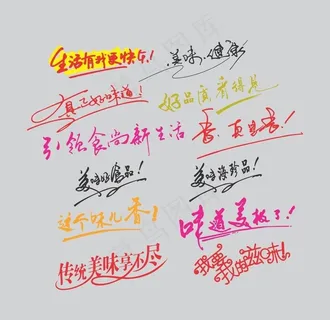 生活有我更快乐!
美味,健康
真正好味道!
好品质看得见
引领食尚新生活
香,真是香!
美味好食品!
美味海珍品!
这个味儿香!
味道美极了!
传统美味享不尽
我要我的滋味!